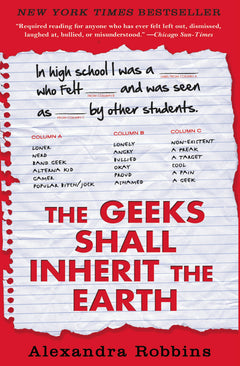 NEW YORK TIMES BESTSELLER
"Required reading for anyone who has ever felt left out, dismissed,
laughed at, bullied, or misunderstood." —Chicago Sun-Times
In high school I was a
(WORD FROM COLUMN A)
who felt and was seen
(WORD FROM COLUMN B)
as by other students.
(WORD FROM COLUMN C)
COLUMN A COLUMN B COLUMN C
LONER LONELY NON-EXISTENT
NERD ANGRY A FREAK
BAND GEEK BULLIED A TARGET
ALTERNA KID OKAY COOL
GAMER PROUD A PAIN
POPULAR BITCH/JOCK ASHAMED A GEEK
THE GEEKS
SHALL
INHERIT THE
EARTH
Alexandra Robbins